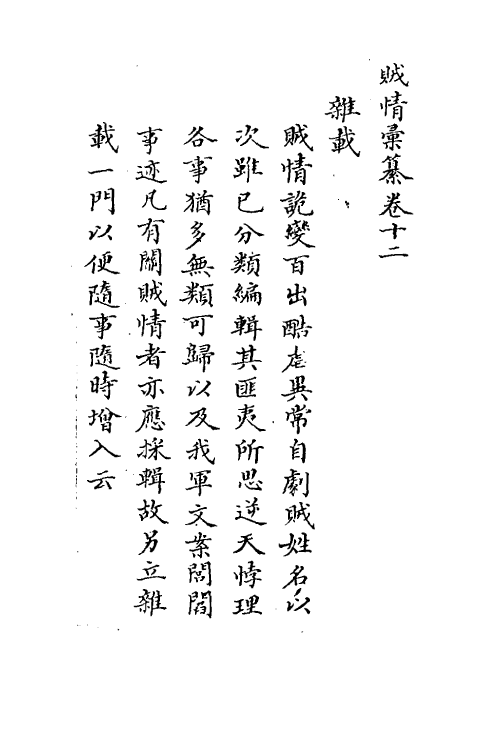 賊情彙纂卷十二
雜載
賊情詭變百出酷虐異常自劇賊姓名以
次雖已分類編輯其匪夷所思逆天悖理
各事猶多無類可歸以及我軍文案閭閻
事迹凡有關賊情者亦應採輯故另立雜
載一門以便隨事隨時增入云